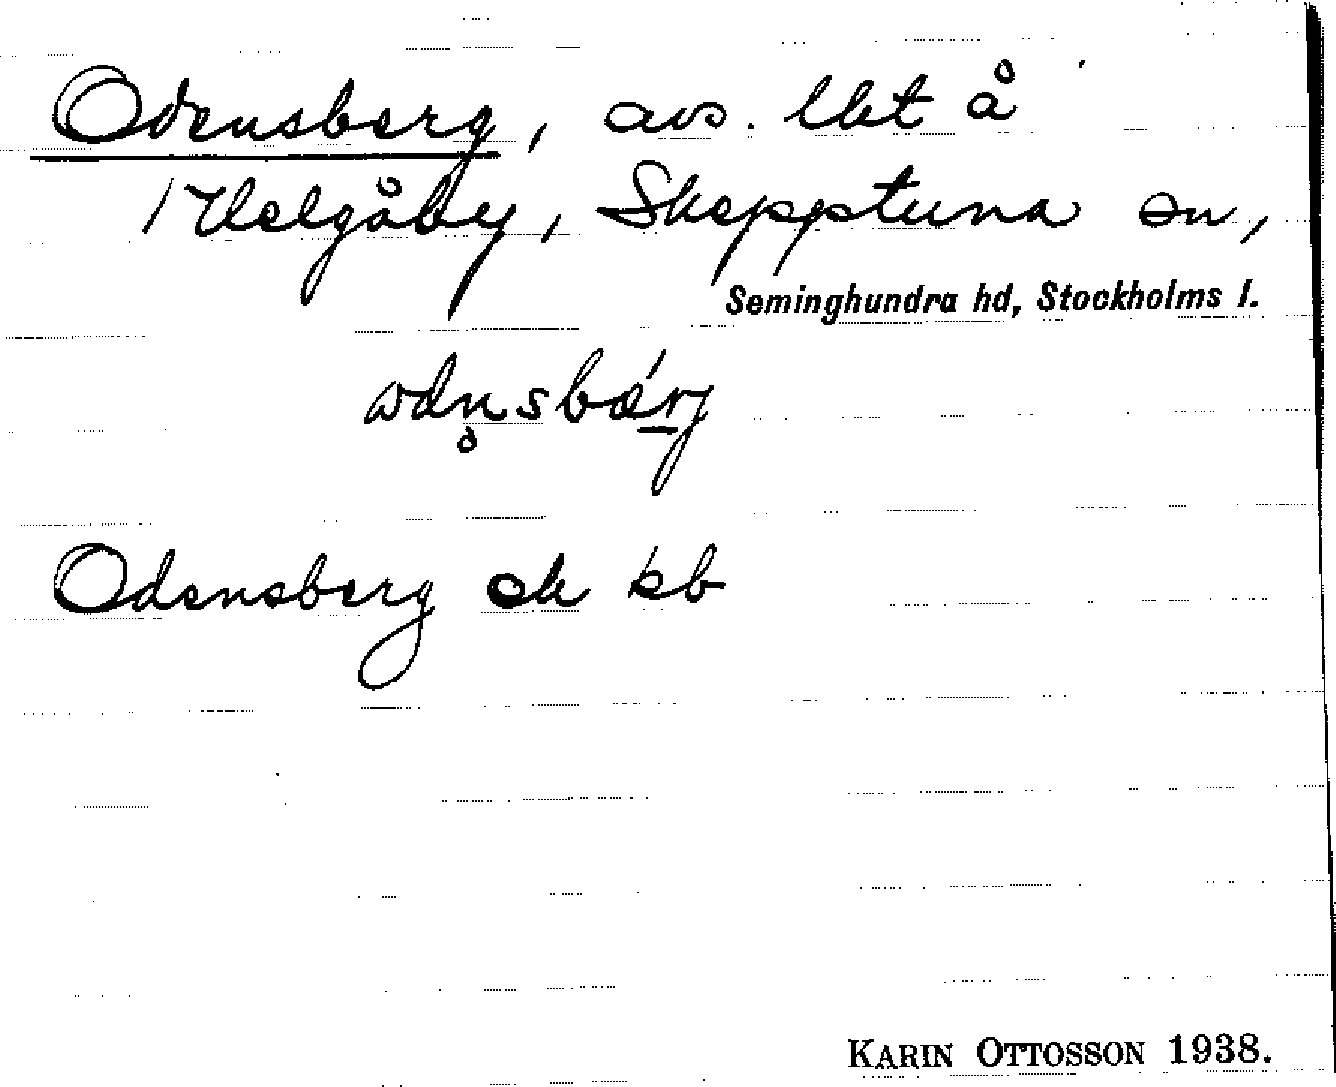 Odensberg, avs. lht å
1 Helgåby, Skepptuna sn,
Seminghundra hd, Stockholms l.
ωdn̥sbǽrg
Odensberg ek kb
KARIN OTTOSSON 1938.